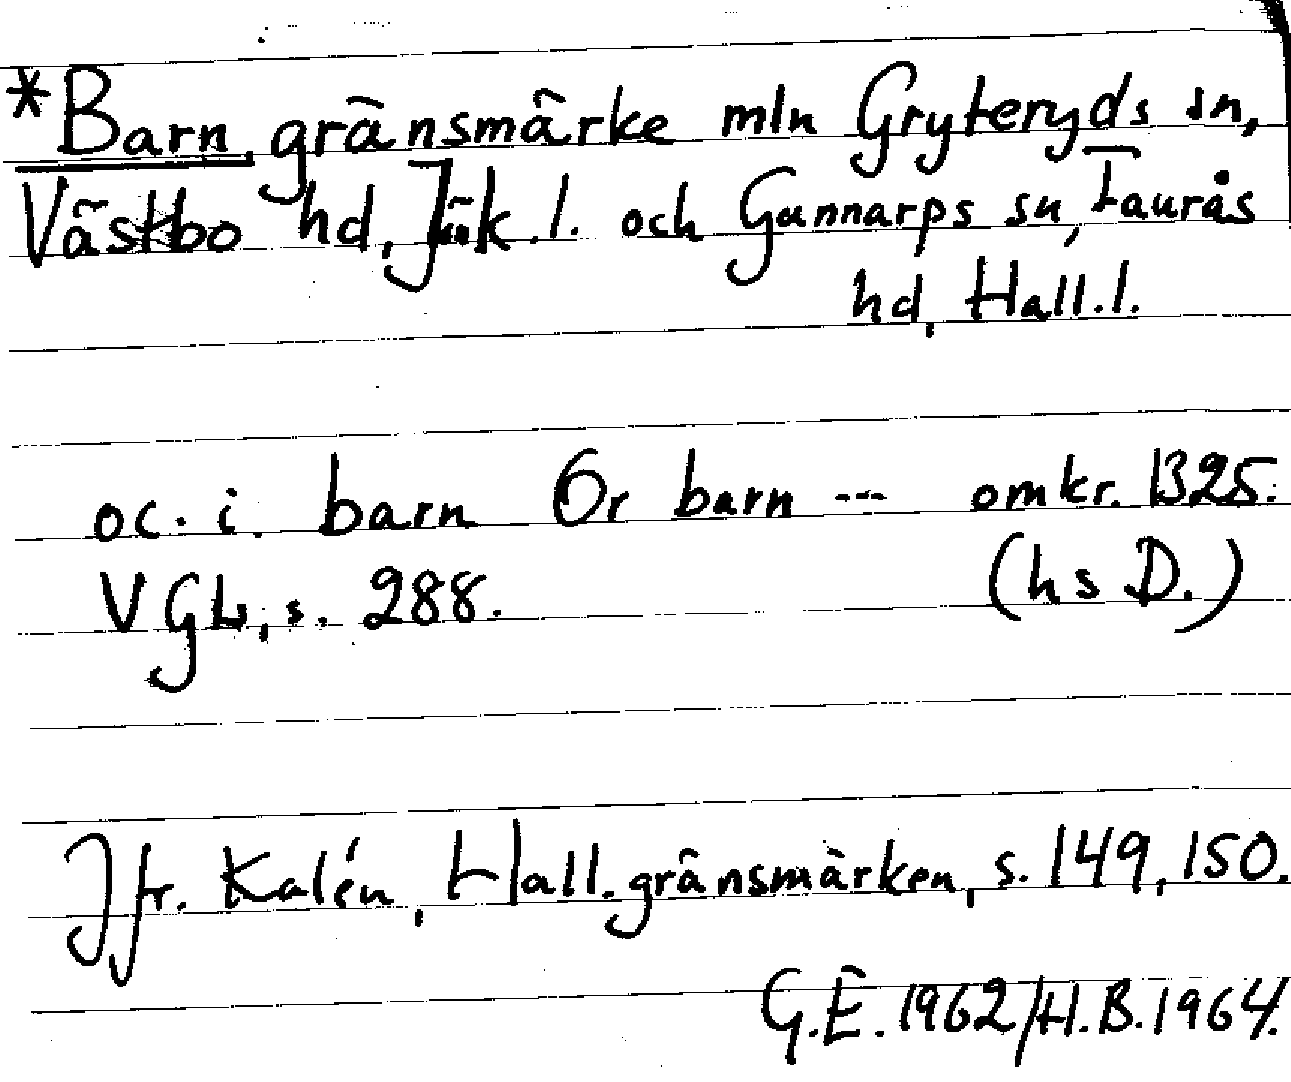 *Barn, gränsmärke mln Gryteryds sn,
Västbo hd, Jük.l. och Gunnarps sn, Faurås
hd, Hall.l.
oc. i. barn Or barn --- omkr. 1325.
VGL, s. 288. (hs D.)
Jfr. Kalén, Hall. gränsmärken, s. 149, 150.
G.E. 1962/H.B. 1964.